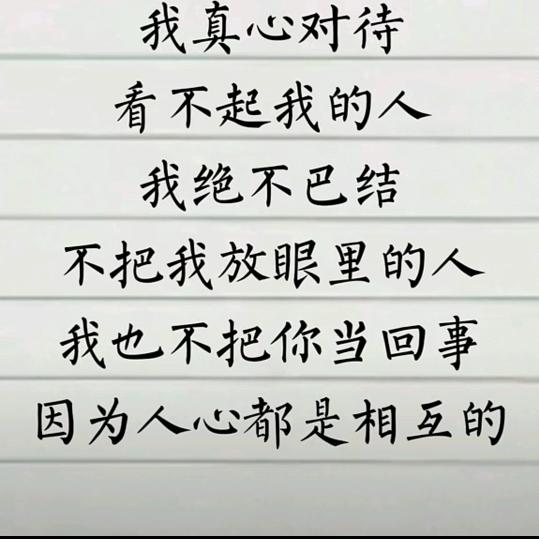 我真心对待
看不起我的人
我绝不巴结
不把我放眼里的人
我也不把你当回事
因为人心都是相互的